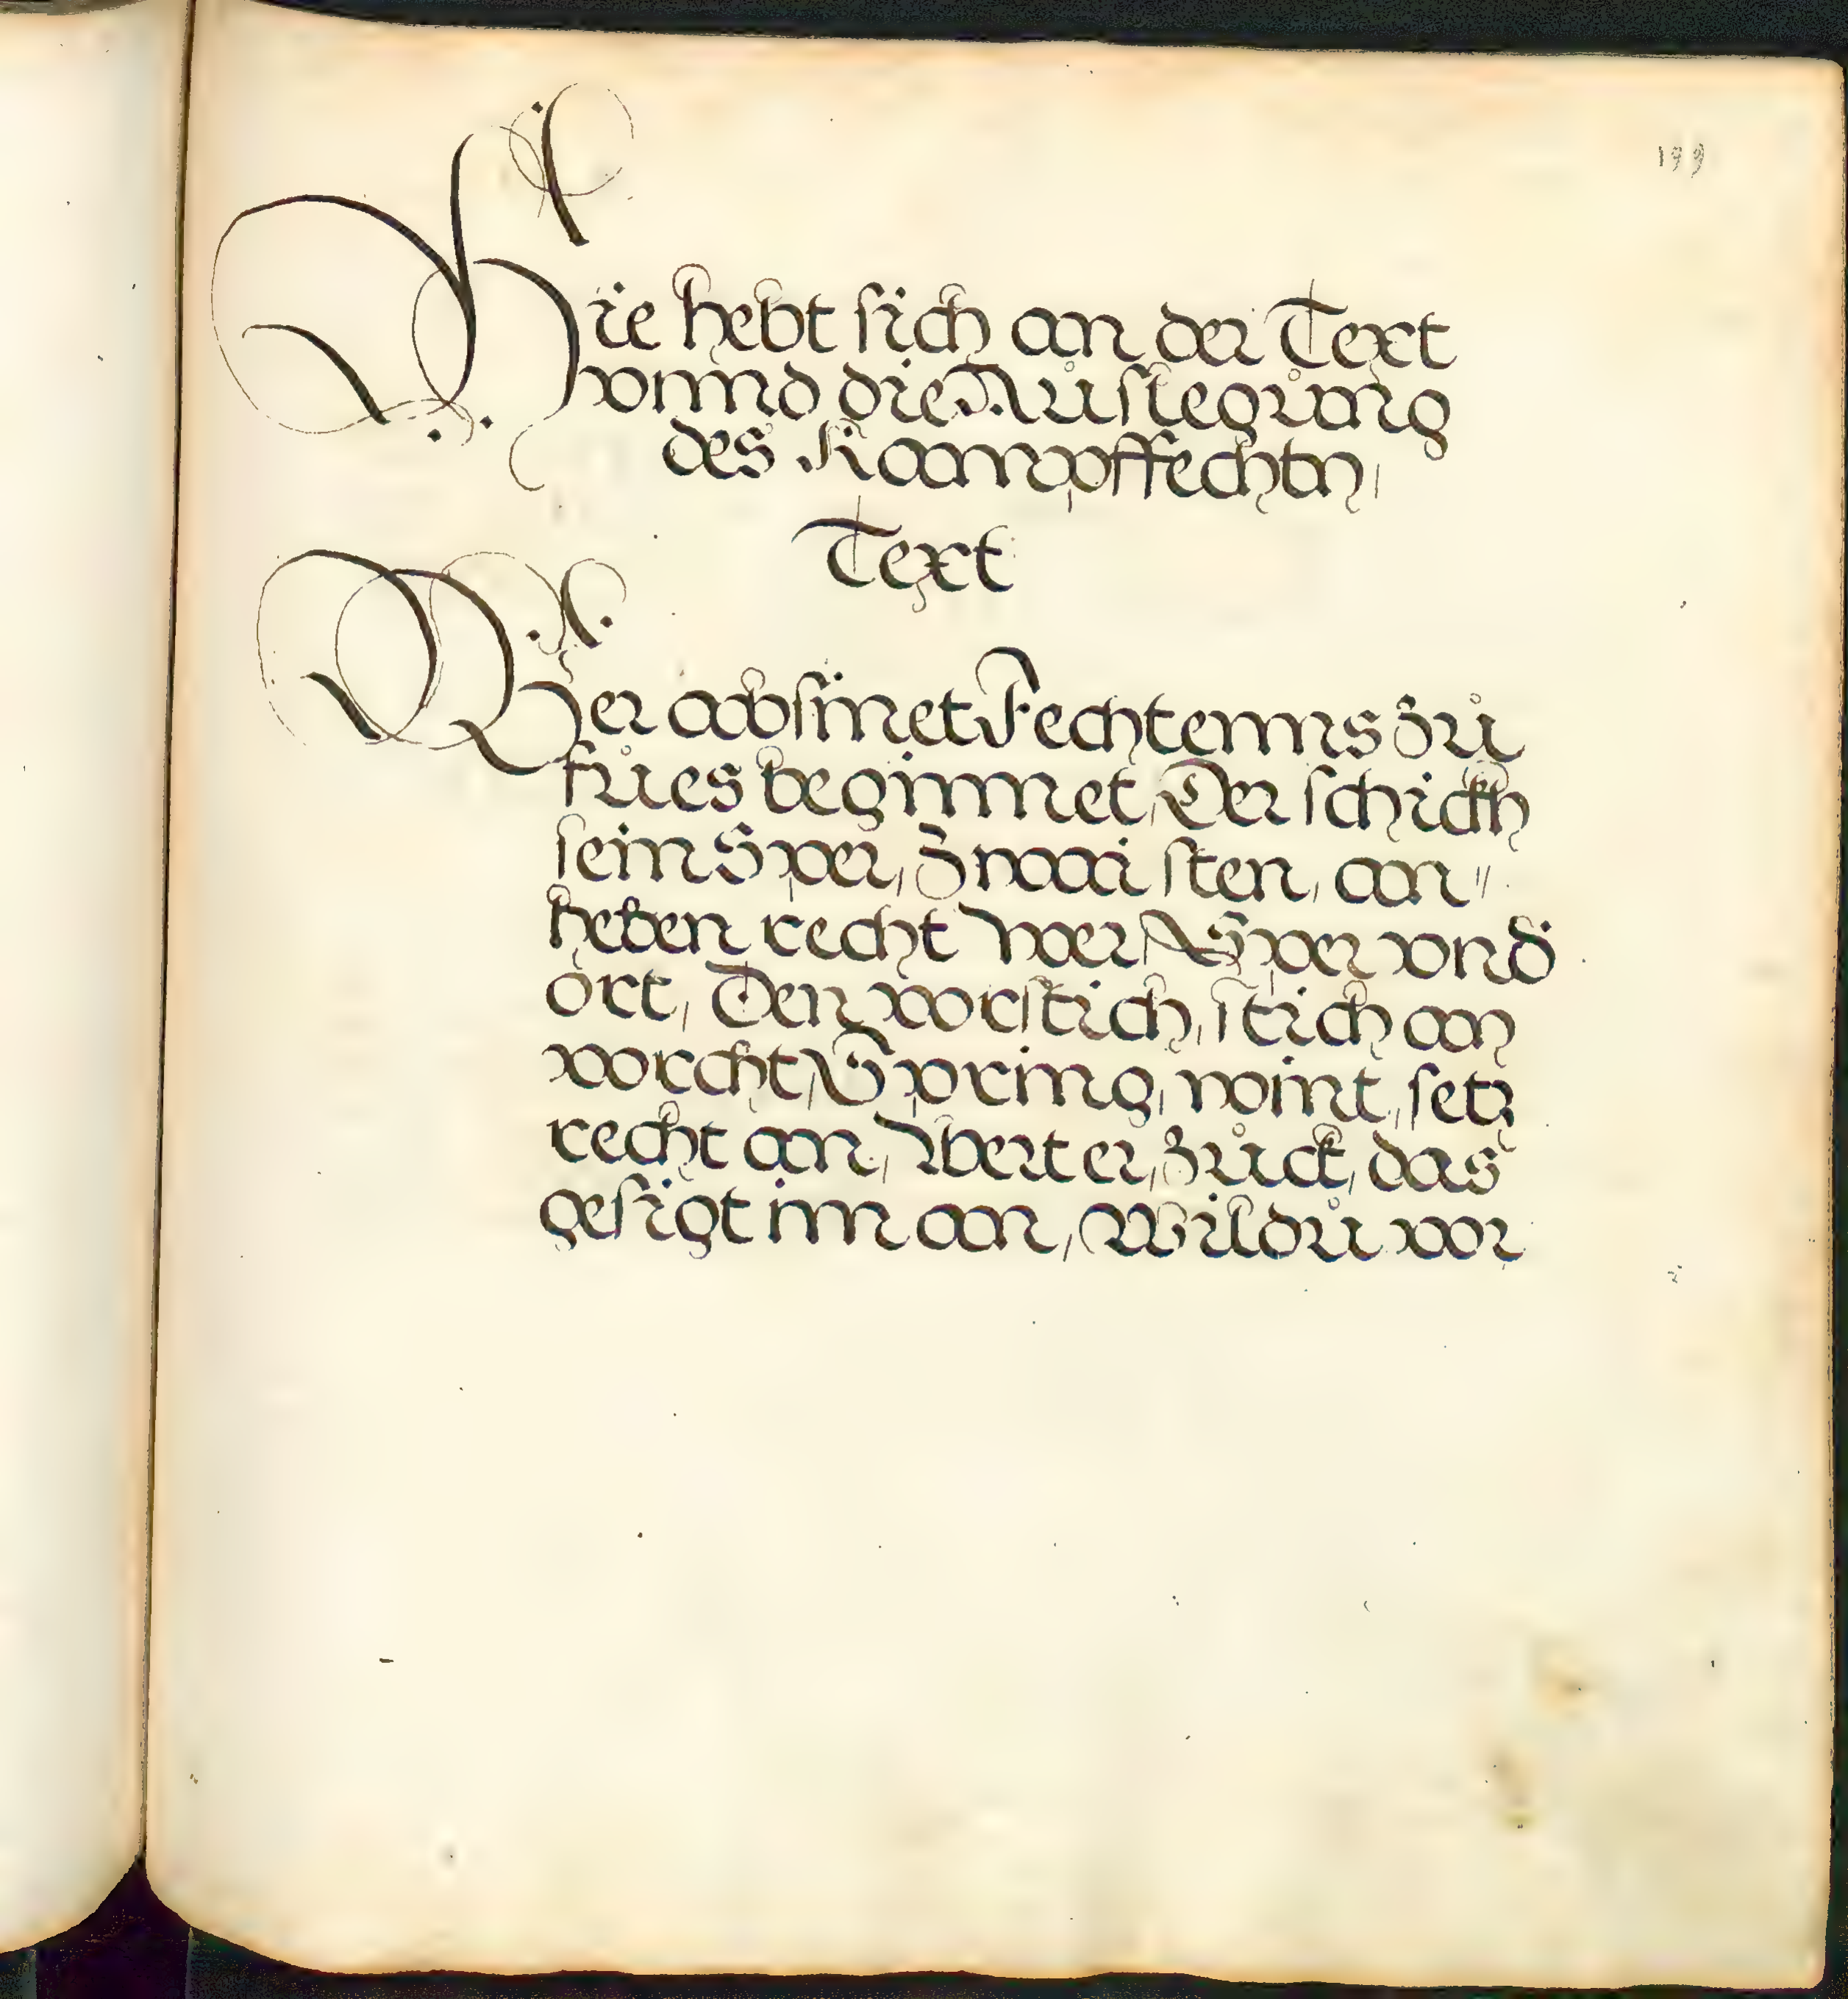 199
Hie hebt sich an der Text
vnnd die Auslegůng
des Kampffechtn,
Text
Wer absinet Fechtenns zů
fůes beginnet, Der schickh
sein Sper, Zwai sten, an〃
heben recht wer, Sper vnd
ort, Den vorstich, stich an
vorcht, Spring, wint, setz
recht an, Wert er, zůck, das
gesigt im an, Wildů vor